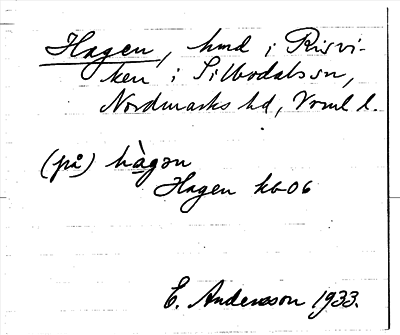 Hagen, hmd i Risvi-
ken i Silbodals sn,
Nordmarks hd, Vrml l.
(på) hàgən
Hagen kb 06
E. Andersson 1933.